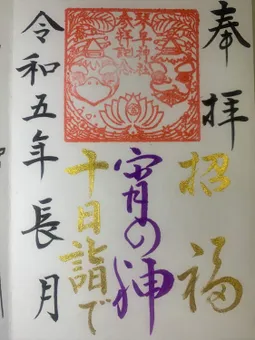 奉拝
招福
宵の神
十日詣で
令和五年長月